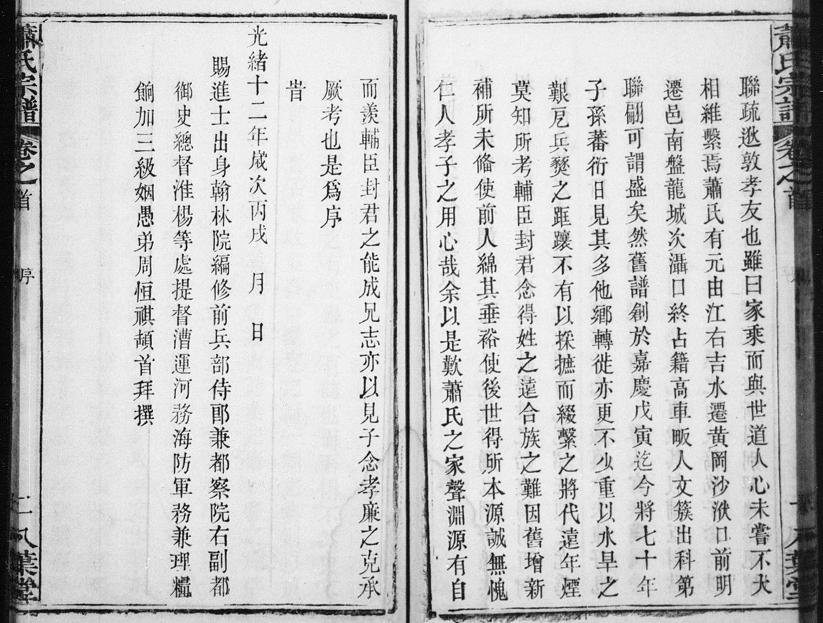 蕭氏宗譜 卷之首 序 八葉堂
聯疏逖敦孝友也雖曰家乘而與世道人心未嘗不大
相維繫焉蕭氏有元由江右吉水遷黃岡沙洑口前明
遷邑南盤龍城次灄口終占籍高車畈人文簇出科第
聯翩可謂盛矣然舊譜創於嘉慶戊寅迄今將七十年
子孫蕃衍日見其多他鄉轉徙亦更不少重以水旱之
艱戹兵燹之蹂躪不有以採摭而綴繫之將代遠年煙
莫知所考輔臣封君念得姓之遠合族之難因舊增新
補所未備使前人綿其垂裕使後世得所本源誠無愧
仁人孝子之用心哉余以是歎蕭氏之家聲淵源有自
而羨輔臣封君之能成兄志亦以見子念孝廉之克承
厥考也是爲序
旹
光緒十二年歲次丙戌 月 日
賜進士出身翰林院編修前兵部侍郎兼都察院右副都
御史總督淮楊等處提督漕運河務海防軍務兼理糧
餉加三級姻愚弟周恒祺頓首拜撰
蕭氏宗譜 卷之首 序 二 八葉堂